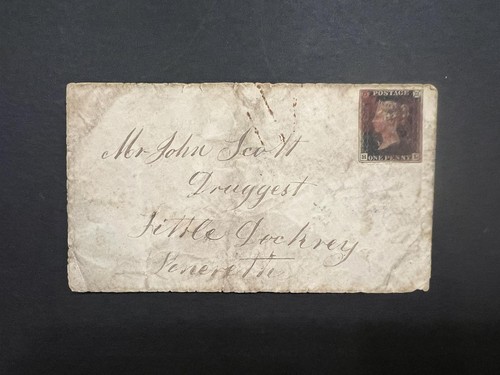 POSTAGE
ONE PENNY
Mr John Scott
Druggest
Little Dockrey
Penereth